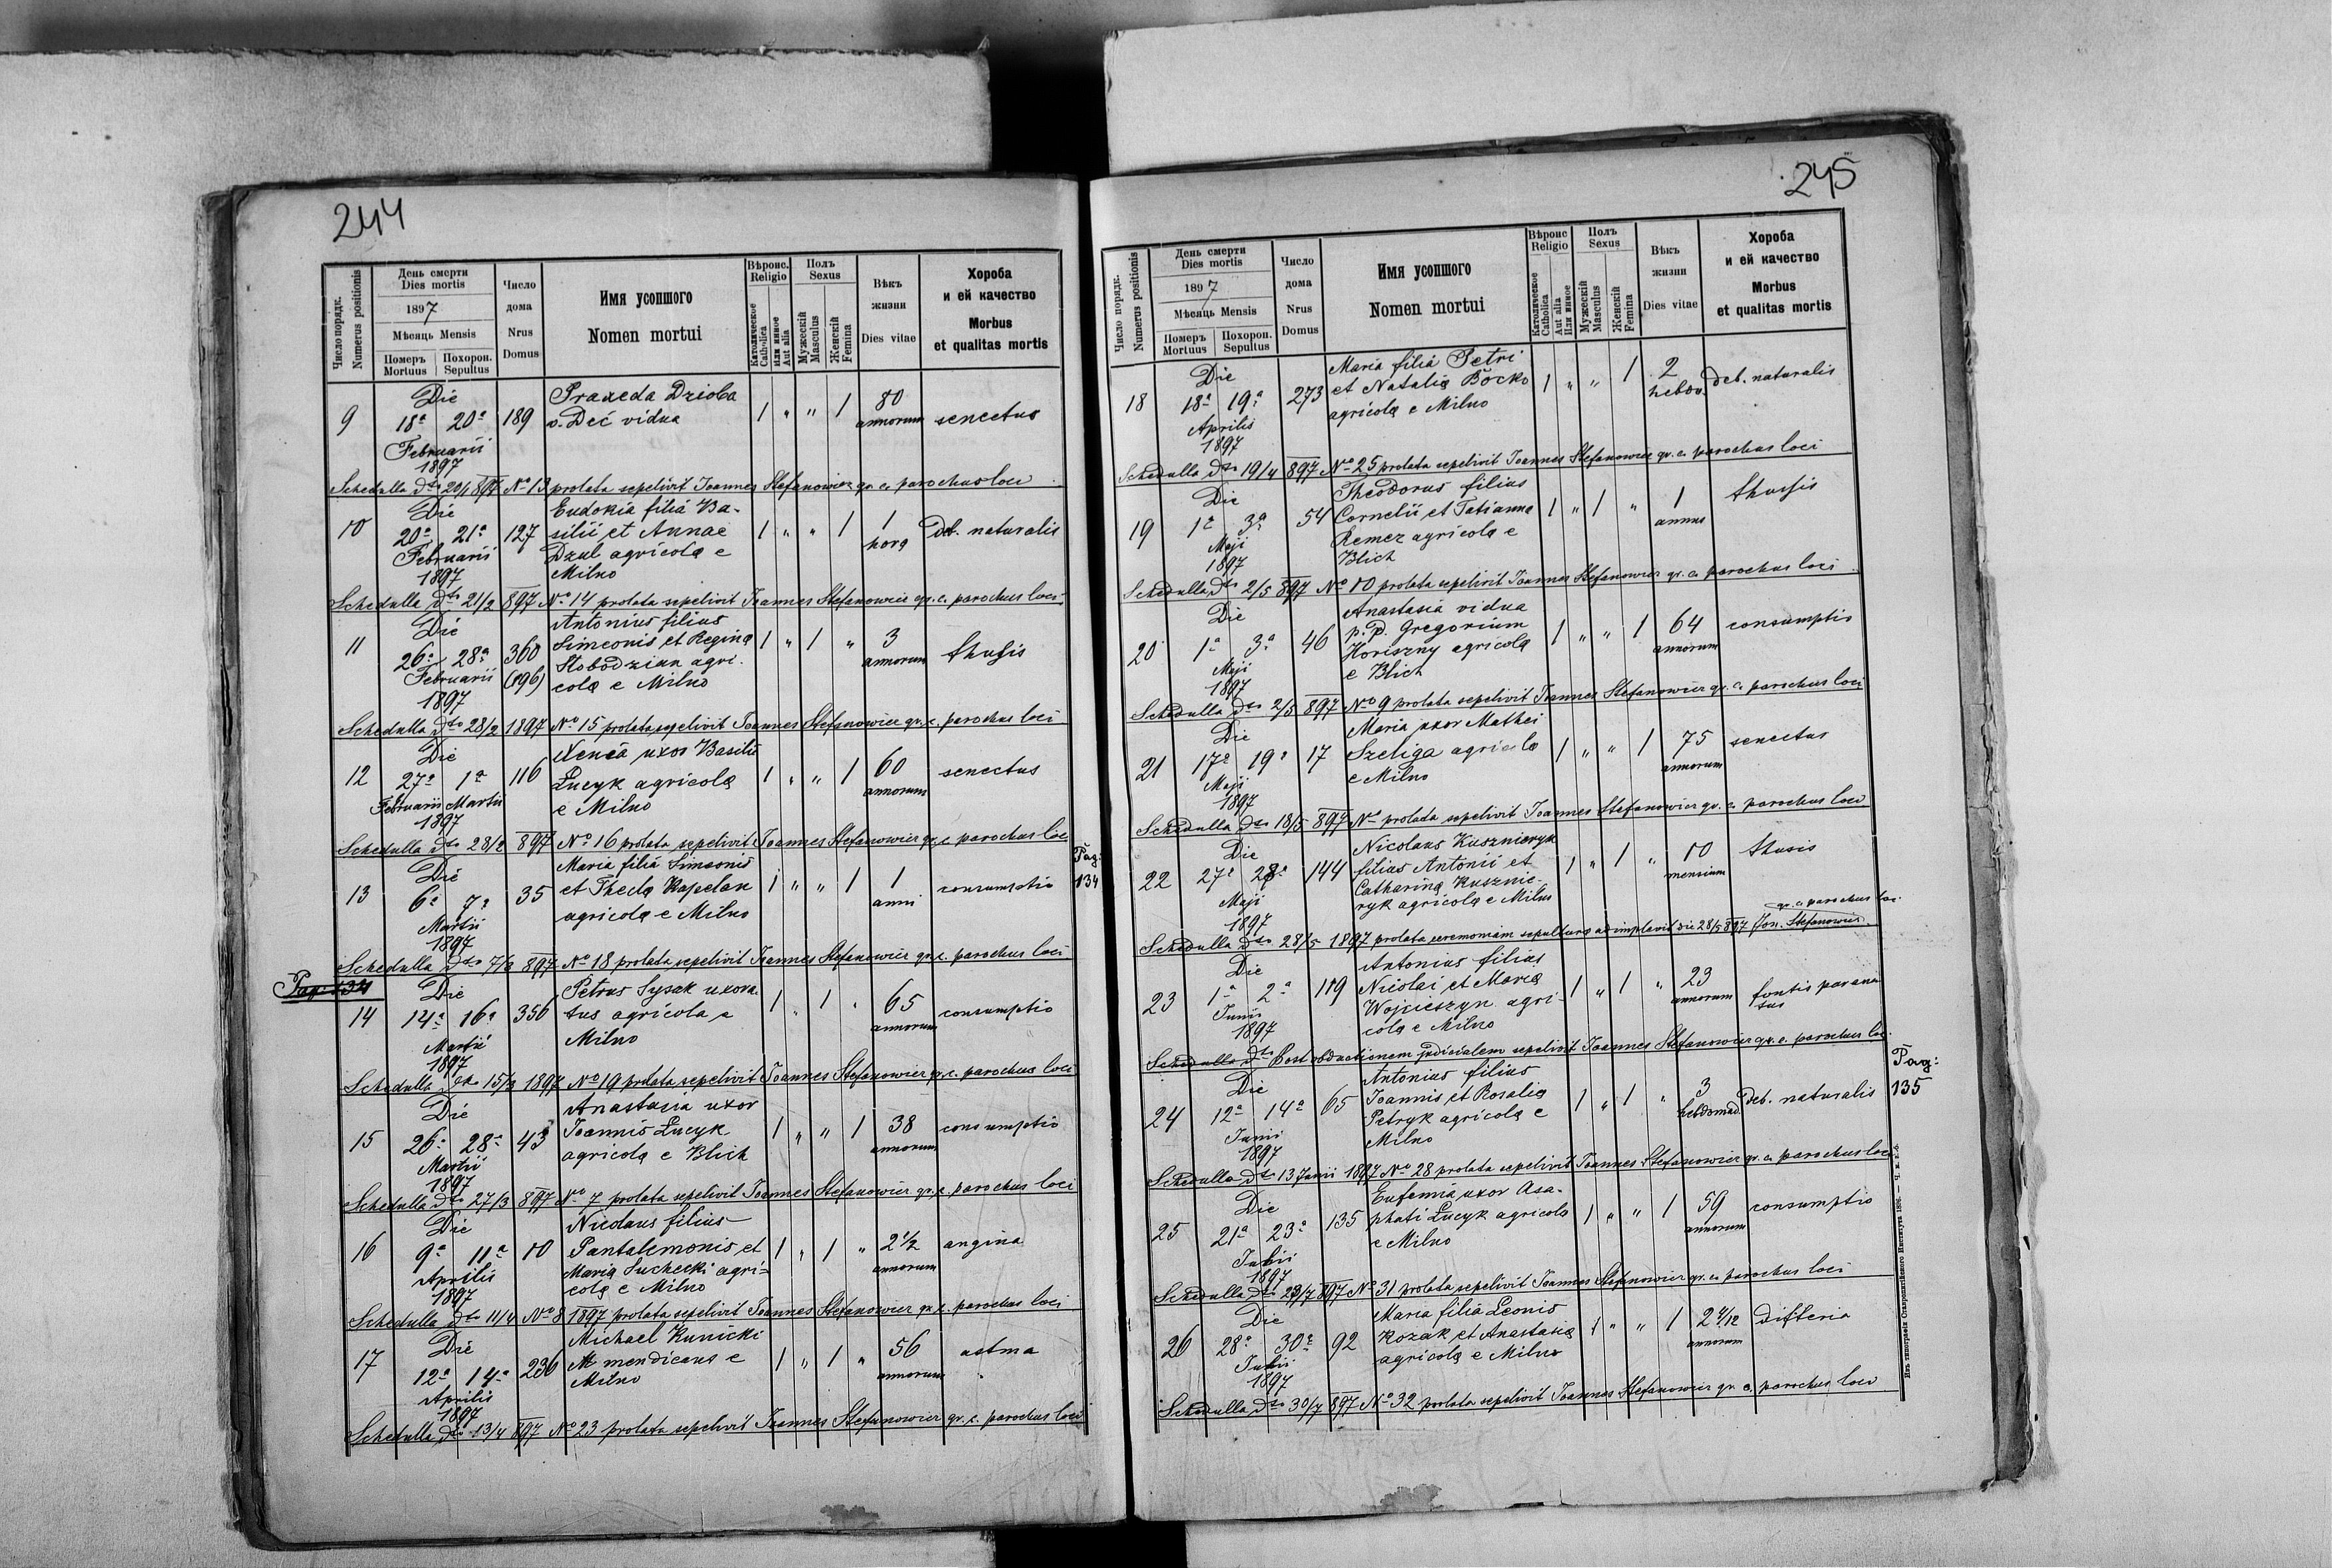 244
Число порядк. Numerus positionis
День смерти Dies mortis
1897
Мѣсяць Mensis
Померъ Mortuus
Похорон. Sepultus
Число дома Nrus Domus
Имя усопшого
Nomen mortui
Вѣроис. Religio
Католическое Catholica
Или иное Aut alia
Полъ Sexus
Мужескій Masculus
Женскій Femina
Вѣкъ жизни
Dies vitae
Хороба и ей качество
Morbus et qualitas mortis
9 Die 18ª 20ª Februarii 1897 189 Praxeda Dzioba
v. Deć vidua 1 " " 1 80 annorum senectus
Schedulla dto 20/2 897 No 13 prolata sepelivit Joannes Stefanowicz gr. c. parochus loci
10 Die 20ª 21ª Februarii 1897 127 Eudokia filia Ba-
silii et Annae
Dzul agricola e
Milno 1 " " 1 1 hora deb. naturalis
Schedulla dto 21/2 897 No 14 prolata sepelivit Joannes Stefanowicz gr. c. parochus loci
11 Die 26ª 28ª Februarii 1897 360 (196) Antonius filius
Simeonis et Regina
Słobodzian agri-
cola e Milno 1 " 1 " 3 annorum thusis
Schedulla dto 28/2 1897 No 15 prolata sepelivit Joannes Stefanowicz gr. c. parochus loci
12 Die 27ª 1ª Februarii Martii 1897 116 Xenia uxor Basilii
Łucyk agricola
e Milno 1 " " 1 60 annorum senectus
Schedulla dto 28/2 897 No 16 prolata sepelivit Joannes Stefanowicz gr. c. parochus loci
13 Die 6ª 7ª Martii 1897 35 Maria filia Simeonis
et Thecla Kapelan
agricola e Milno 1 " " 1 1 anni consumptio
Pag: 134
Schedulla dto 7/3 897 No 18 prolata sepelivit Joannes Stefanowicz gr. c. parochus loci
Pag: 134
14 Die 14ª 16ª Martii 1897 356 Petrus Sysak uxora-
tus agricola e
Milno 1 " 1 " 65 annorum consumptio
Schedulla dto 15/3 1897 No 19 prolata sepelivit Joannes Stefanowicz gr. c. parochus loci
15 Die 26ª 28ª Martii 1897 43 Anastasia uxor
Joannis Łucyk
agricola e Blich 1 " " 1 38 annorum consumptio
Schedulla dto 27/3 897 No 7 prolata sepelivit Joannes Stefanowicz gr. c. parochus loci
16 Die 9ª 11ª Aprilis 1897 10 Nicolaus filius
Pantalemonis et
Maria Suchecki agri-
cola e Milno 1 " 1 " 2 1/2 annorum angina
Schedulla dto 11/4 No 8 1897 prolata sepelivit Joannes Stefanowicz gr. c. parochus loci
17 Die 12ª 14ª Aprilis 1897 236 Michael Kunicki
M mendicans e
Milno 1 " 1 " 56 annorum astma
Schedulla dto 13/4 897 No 23 prolata sepelivit Joannes Stefanowicz gr. c. parochus loci
245
Число порядк. Numerus positionis
День смерти Dies mortis
1897
Мѣсяць Mensis
Померъ Mortuus
Похорон. Sepultus
Число дома Nrus Domus
Имя усопшого
Nomen mortui
Вѣроис Religio
Католическое Catholica
Aut alia Или иное
Полъ Sexus
Мужескій Masculus
Женскій Femina
Вѣкъ жизни
Dies vitae
Хороба и ей качество
Morbus et qualitas mortis
18 Die 18ª 19ª Aprilis 1897 273 Maria filia Petri
et Natalia Bocko
agricola e Milno 1 " " 1 2 hebdo. deb. naturalis
Schedulla dto 19/4 897 No 25 prolata sepelivit Joannes Stefanowicz gr. c. parochus loci
19 Die 1ª 3ª Maji 1897 54 Theodorus filius
Cornelii et Tatianna
Remez agricola e
Blich 1 " 1 " 1 annus thusis
Schedulla dto 2/5 897 No 10 prolata sepelivit Joannes Stefanowicz gr. c. parochus loci
20 Die 1ª 3ª Maji 1897 46 Anastasia vidua
p. d. Gregorium
Horiszny agricola
e Blich 1 " " 1 64 annorum consumptio
Schedulla dto 2/5 897 No 9 prolata sepelivit Joannes Stefanowicz gr. c. parochus loci
21 Die 17ª 19ª Maji 1897 17 Maria uxor Mathei
Szeliga agricola
e Milno 1 " " 1 75 annorum senectus
Schedulla dto 18/5 897 No prolata sepelivit Joannes Stefanowicz gr. c. parochus loci
22 Die 27ª 28ª Maji 1897 144 Nicolaus Kusznieryk
filius Antonii et
Catharina Kusznie-
ryk agricola e Milno 1 " 1 " 10 mensium thusis
gr. c. parochus loci
Schedulla dto 28/5 1897 prolata ceremoniam sepulturae adimplavit die 28/5 897 Jon. Stefanowicz
23 Die 1ª 2ª Junii 1897 119 Antonius filius
Nicolai et Maria
Wojcieszyn agri-
cola e Milno 1 " 1 " 23 annorum
Schedulla dto Post obductionem judicialem sepelivit Joannes Stefanowicz gr. c. parochus loci
Pag: 135
24 Die 12ª 14ª Junii 1897 65 Antonius filius
Joannis et Rosalia
Petryk agricola e
Milno 1 " 1 " 3 hebdomad. deb. naturalis
Schedulla dto 13 Junii 1897 No 28 prolata sepelivit Joannes Stefanowicz gr. c. parochus loci
25 Die 21ª 23ª Julii 1897 135 Eufemia uxor Asa-
phati Łucyk agricola
e Milno 1 " " 1 59 annorum consumptio
Schedulla dto 23/7 897 No 31 prolata sepelivit Joannes Stefanowicz gr. c. parochus loci
26 Die 28ª 30ª Julii 1897 92 Maria filia Leonis
Kozak et Anastasia
agricola e Milno 1 " " 1 2 4/12 annorum difteria
Schedulla dto 30/7 897 No 32 prolata sepelivit Joannes Stefanowicz gr. c. parochus loci
Изъ типографіи Ставропигійского Института 1896.